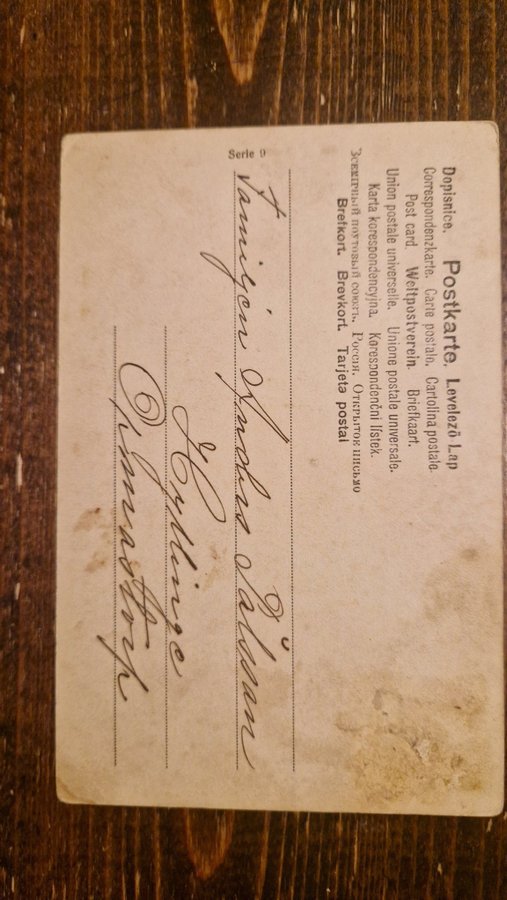 Dopisnice. Postkarte. Levelező Lap
Correspondenzkarte. Carte postale. Cartolina postale.
Post card. Weltpostverein. Briefkaart.
Union postale universelle. Unione postale universale.
Karta korespondencyjna. Korespondenční lístek.
Всемірный почтовый союзъ. Россія. Открытое письмо
Brefkort. Brevkort. Tarjeta postal
Serie 9
Familjen Anders Pålsson
Hyllinge